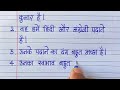 कुमार है ।
2. वह हमें हिंदी और अंग्रेजी पढ़ाते
है ।
3. उनके पढ़ाने का ढंग बहुत अच्छा है ।
4. उनका स्वभाव बहुत